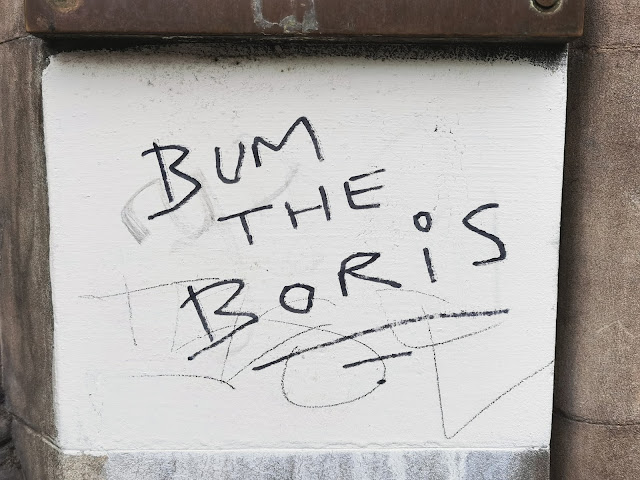 BUM
THE
BORiS